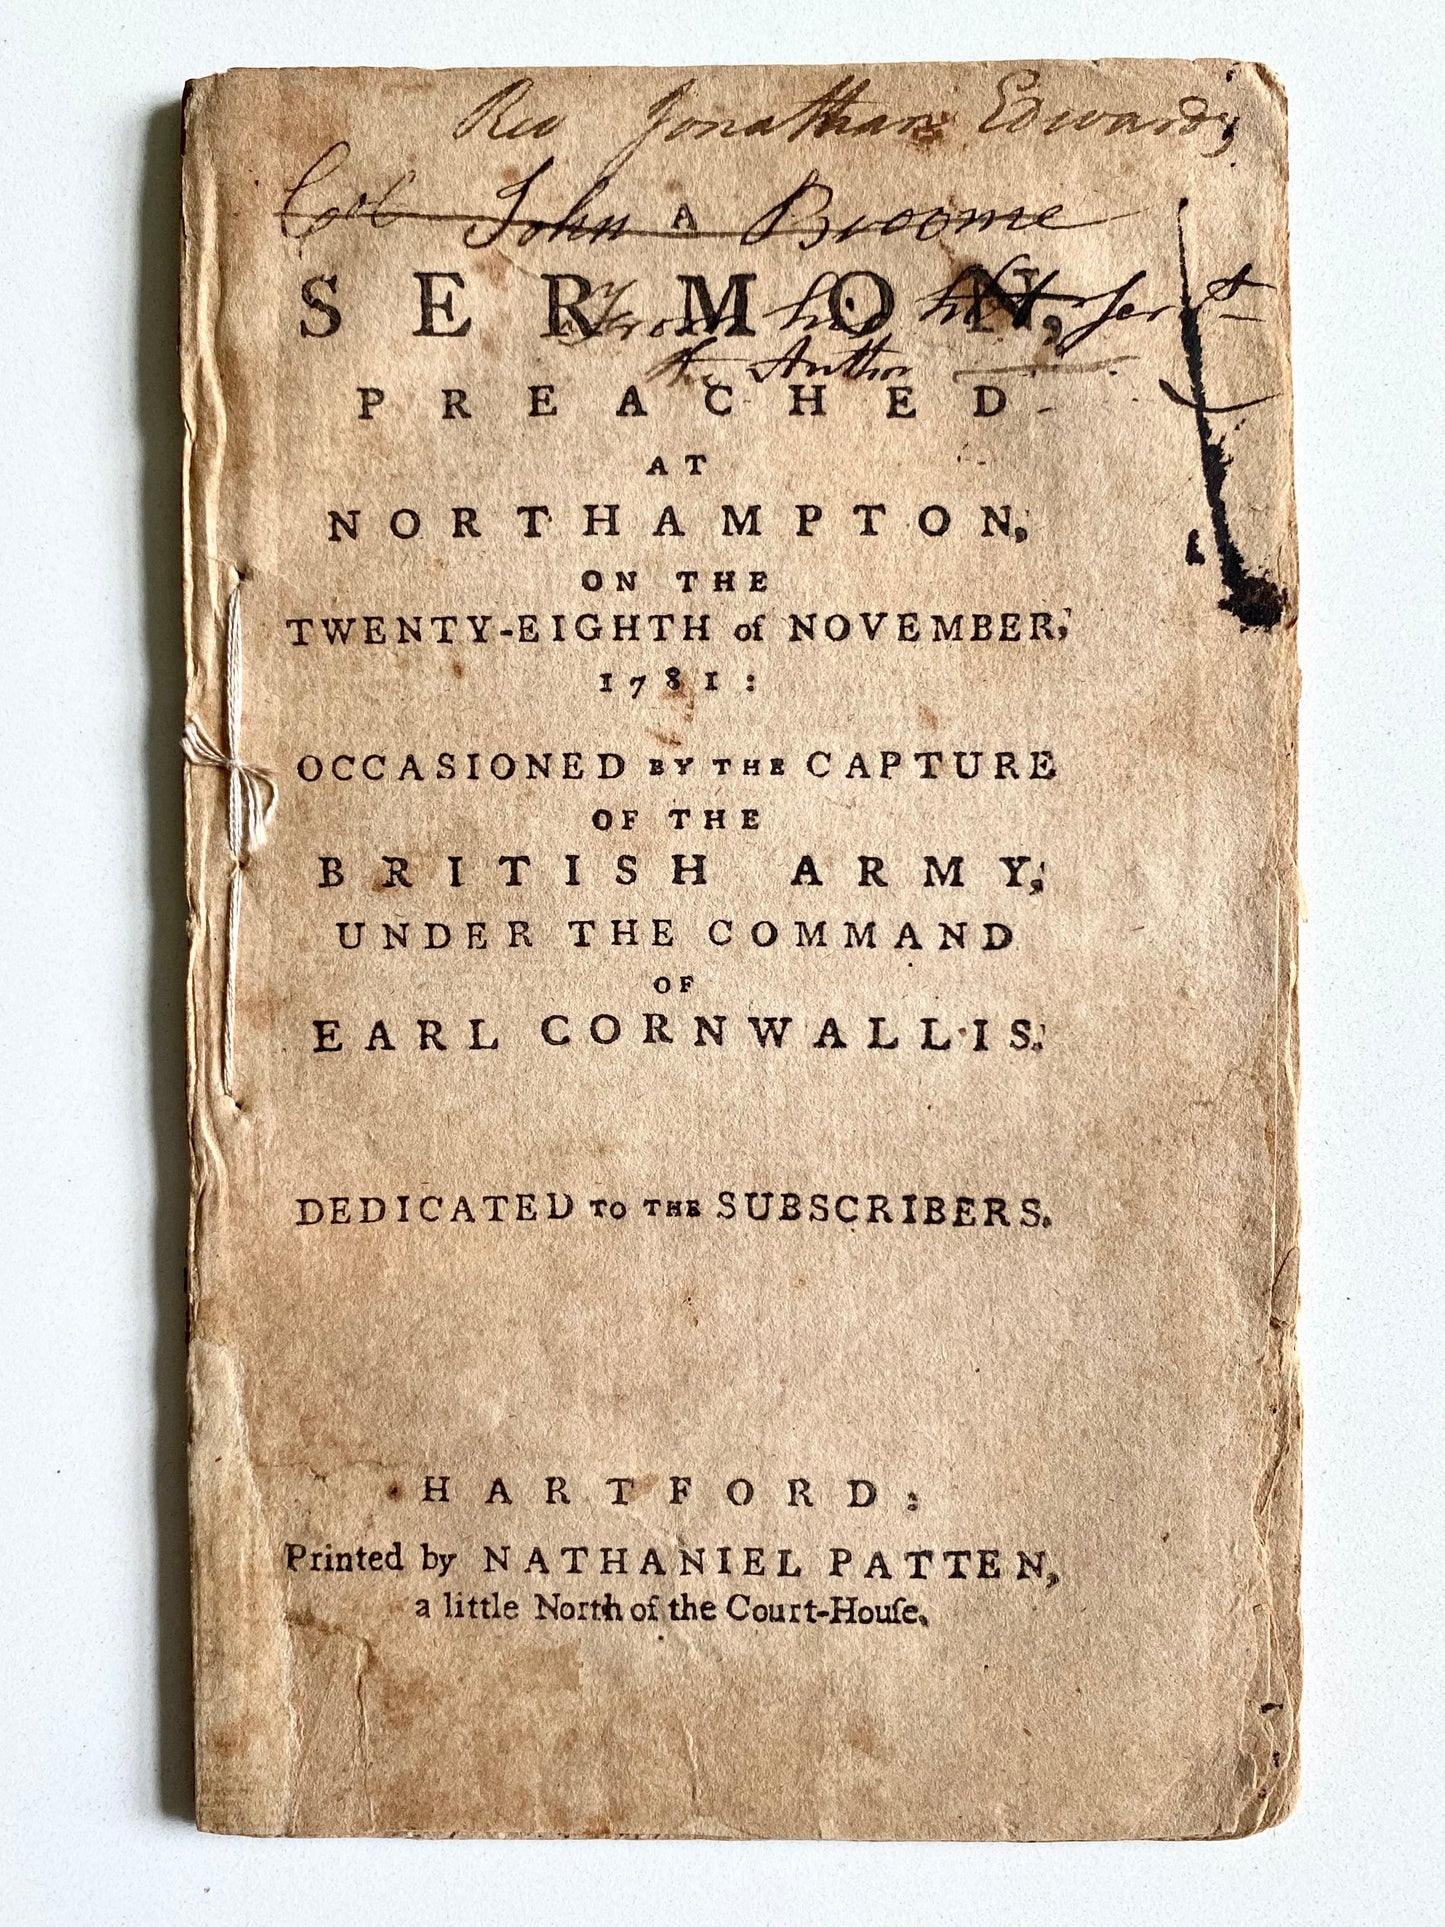 Rev Jonathan Edwards,
Col John Broome
A
SERMON,
From his hbl serᵗ
the Author
PREACHED
AT
NORTHAMPTON,
ON THE
TWENTY-EIGHTH of NOVEMBER,
1781:
OCCASIONED BY THE CAPTURE
OF THE
BRITISH ARMY,
UNDER THE COMMAND
OF
EARL CORNWALLIS.
DEDICATED TO THE SUBSCRIBERS.
HARTFORD:
Printed by NATHANIEL PATTEN,
a little North of the Court-Houſe.